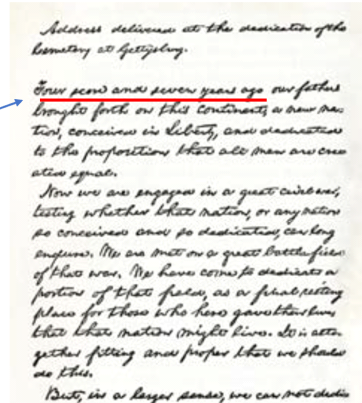 Address delivered at the dedication of the
Cemetery at Gettysburg.
Four score and seven years ago our fathers
brought forth on this continent, a new na-
tion, conceived in Liberty, and dedicated
to the proposition that all men are cre-
ated equal.
Now we are engaged in a great civil war,
testing whether that nation, or any nation
so conceived and so dedicated, can long
endure. We are met on a great battle field
of that war. We have come to dedicate a
portion of that field, as a final resting
place for those who here gave their lives
that that nation might live. It is alto-
gether fitting and proper that we should
do this.
But, in a larger sense, we can not dedi-